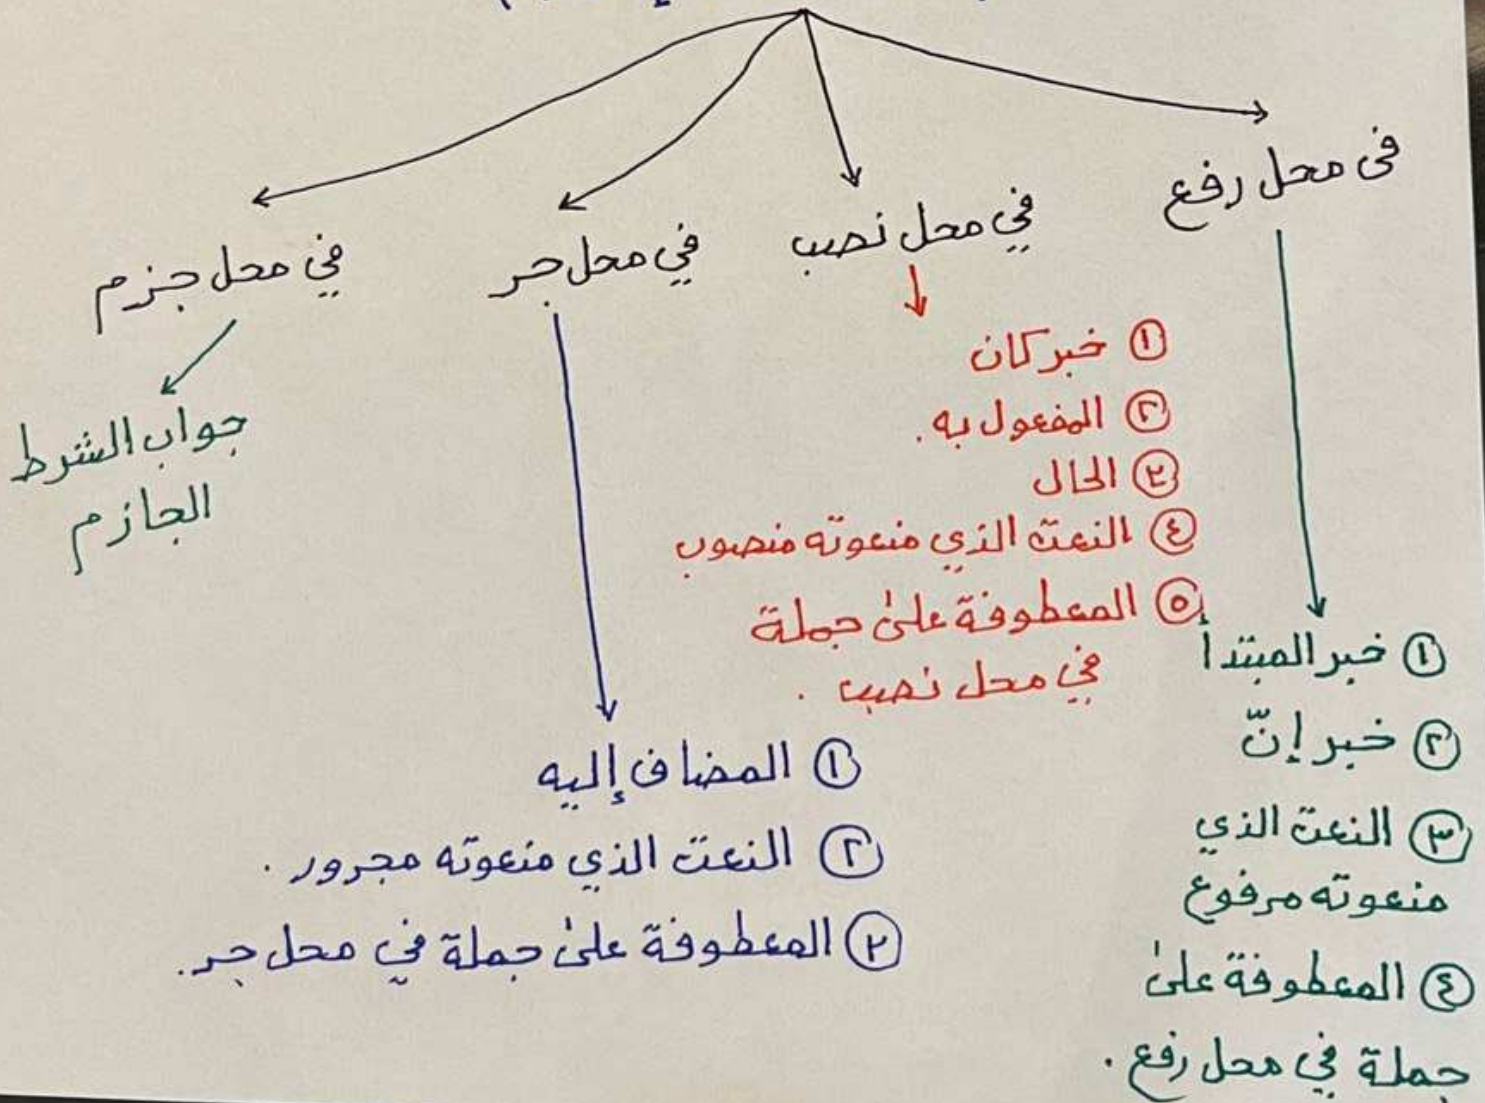 في محل رفع
① خبر المبتدأ
② خبر إنّ
③ النعت الذي
منعوته مرفوع
④ المعطوفة على
جملة في محل رفع .
في محل نصب
① خبر كان
② المفعول به .
③ الحال
④ النعت الذي منعوته منصوب
⑤ المعطوفة على جملة
في محل نصب .
في محل جر
① المضاف إليه
② النعت الذي منعوته مجرور .
③ المعطوفة على جملة في محل جر .
في محل جزم
جواب الشرط
الجازم